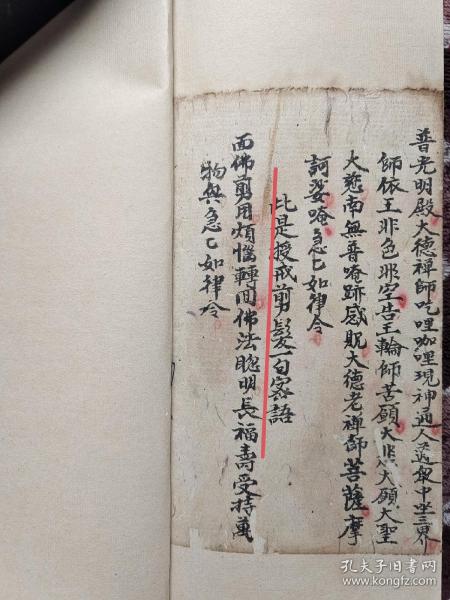 普光明殿大德禅師吃哩咖哩現神通人選眾中坐三界
師依王非色非空告王輪師苦願大悲大願大聖
大慈南無普唵跡感貺大德老禅師菩薩摩
訶娑唵急乙如律令
此是授戒剪髮一句密語
面佛剪用煩惱轉間佛法聰明長福壽受持萬
物與急乙如律令
孔夫子旧书网
www.kongfz.com